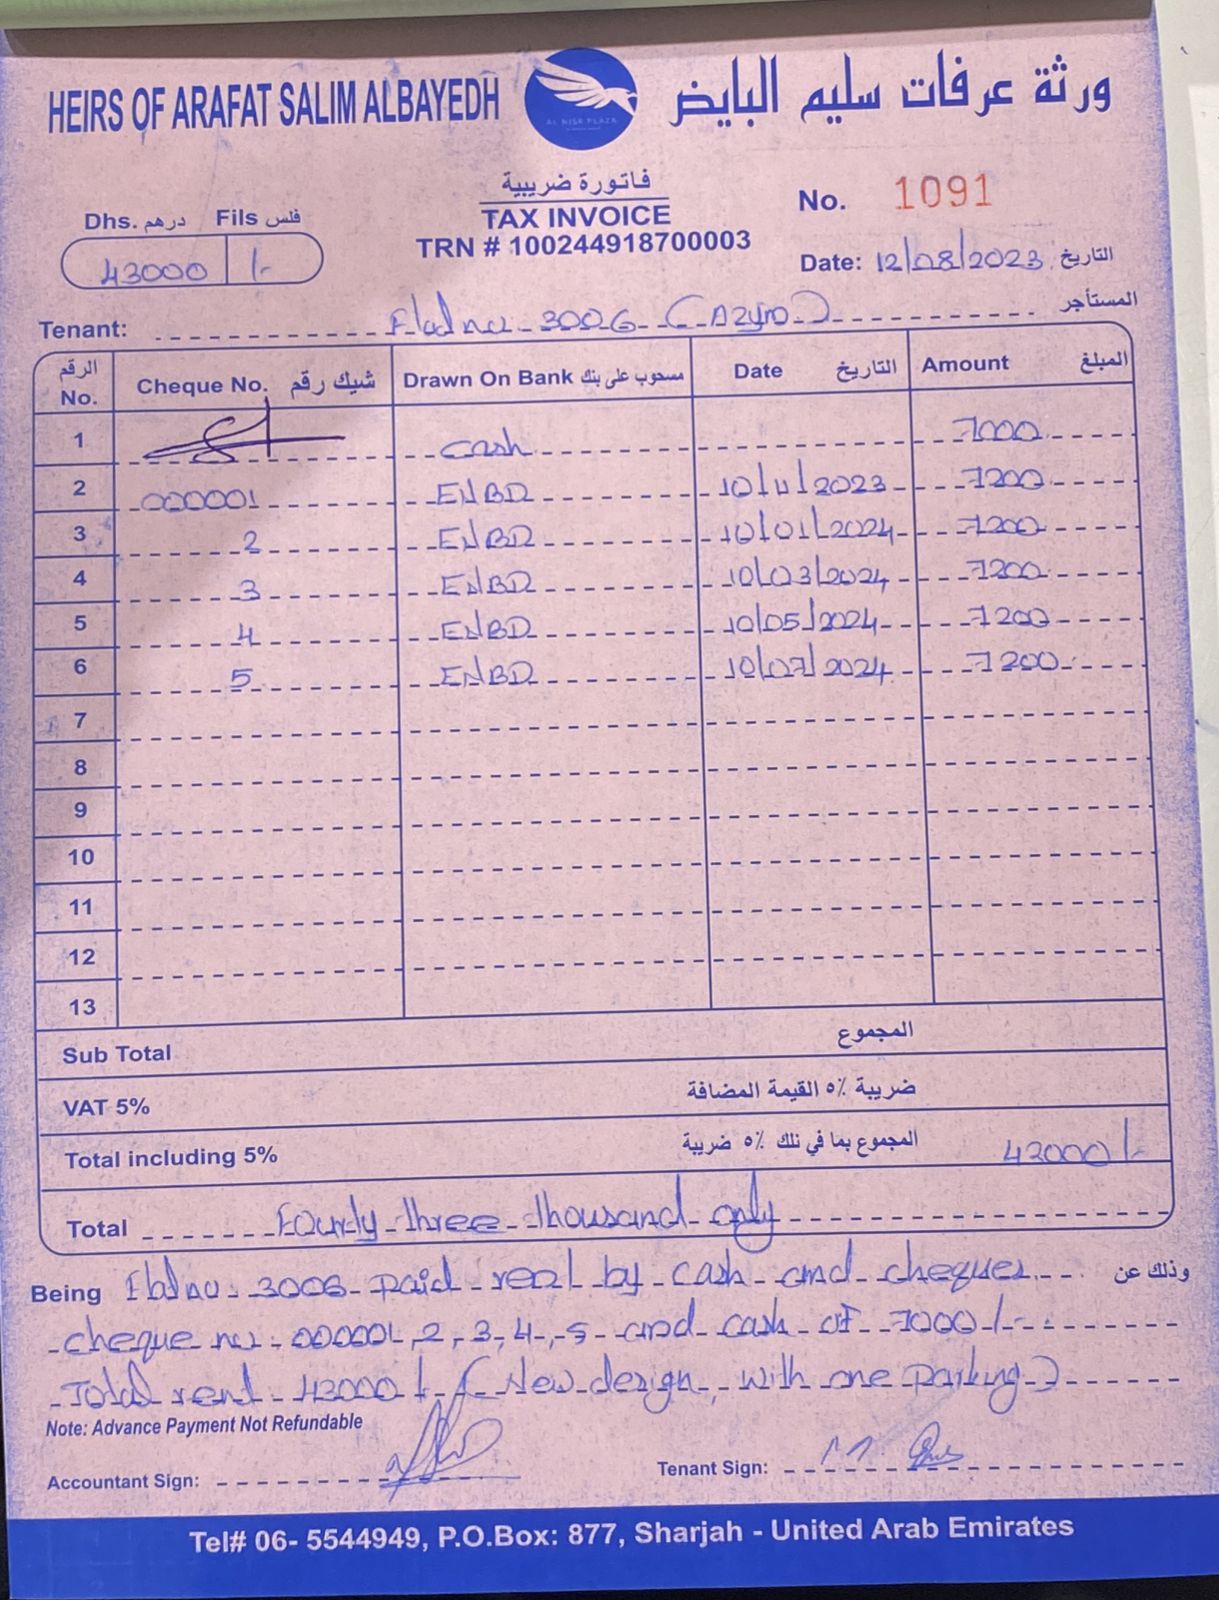 HEIRS OF ARAFAT SALIM ALBAYEDH
AL NISR PLAZA
ورثة عرفات سليم البايض
فاتورة ضريبية
TAX INVOICE
TRN # 100244918700003
No. 1091
Date: 12/08/2023 التاريخ
Dhs. درهم Fils فلس
43000 /-
Tenant: Flat no 3006 المستأجر
الرقم No. Cheque No. شيك رقم Drawn On Bank مسحوب على بنك Date التاريخ Amount المبلغ
1 cash 7000
2 000001 ENBD 10/11/2023 7200
3 2 ENBD 10/01/2024 7200
4 3 ENBD 10/03/2024 7200
5 4 ENBD 10/05/2024 7200
6 5 ENBD 10/07/2024 7200
7
8
9
10
11
12
13
Sub Total المجموع
VAT 5% ضريبة ٥٪ القيمة المضافة
Total including 5% المجموع بما في ذلك ٥٪ ضريبة 43000/-
Total Fourty three thousand only
Being Flat no. 3006 paid rent by cash and cheques وذلك عن
cheque no. 000001, 2, 3, 4, 5 and cash of 7000/-
Total rent 43000/- (New design, with one parking)
Note: Advance Payment Not Refundable
Accountant Sign:
Tenant Sign:
Tel# 06- 5544949, P.O.Box: 877, Sharjah - United Arab Emirates